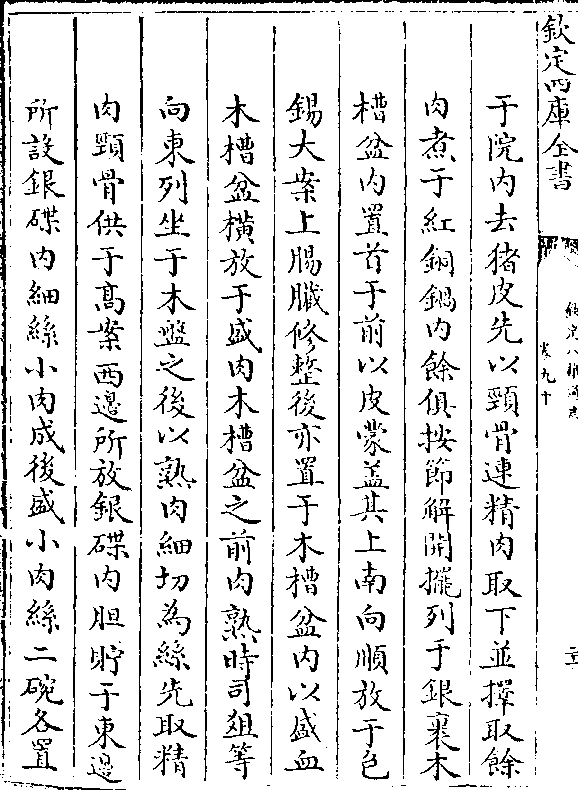 欽定四庫全書
欽定八旗通志
卷九十
于院内去猪皮先以頸骨連精肉取下並擇取餘
肉煮于紅銅鍋内餘俱按節解開擺列于銀裏木
槽盆内置首于前以皮蒙蓋其上南向順放于包
錫大案上腸臓修整後亦置于木槽盆内以盛血
木槽盆横放于盛肉木槽盆之前肉熟時司俎等
向東列坐于木盤之後以熟肉細切為絲先取精
肉頸骨供于髙案西邉所放銀碟内胆貯于東邉
所設銀碟内細絲小肉成後盛小肉絲二碗各置